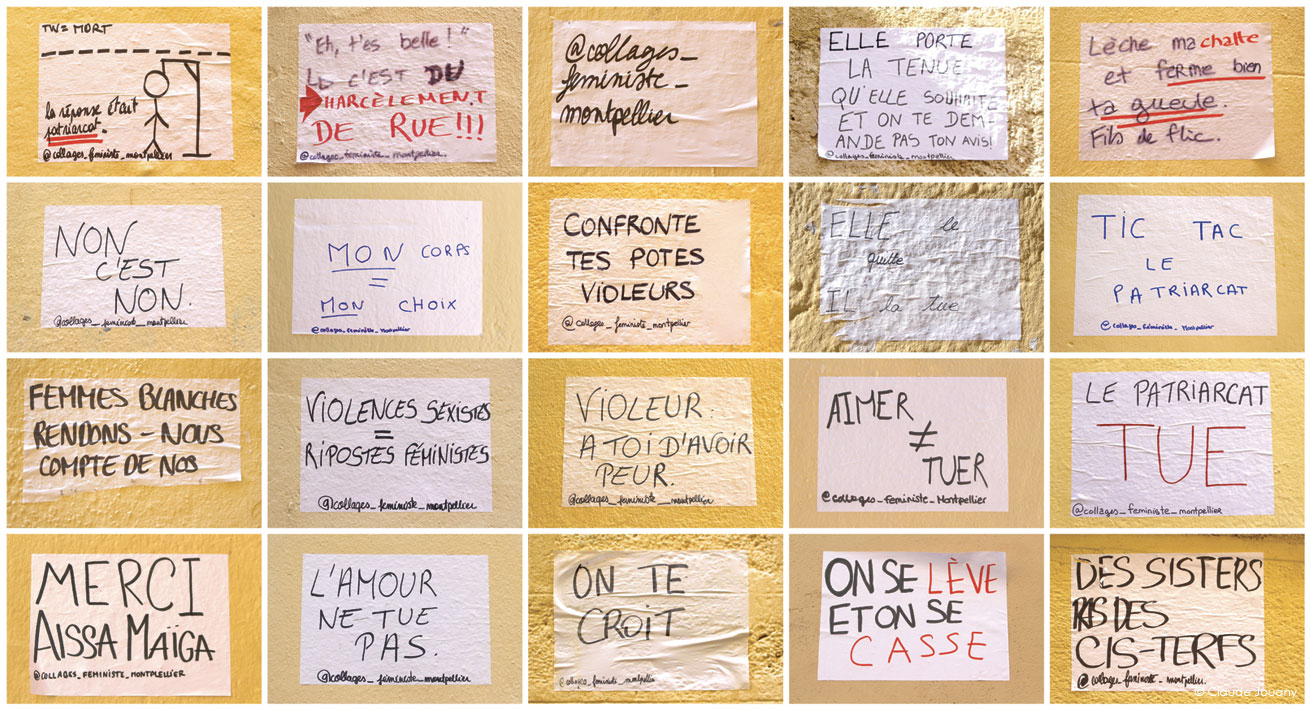 TW = MORT
la réponse était
patriarcat.
@collages_feministe_montpellier
"Eh, t'es belle!"
Là c'est DU
HARCÈLEMENT
DE RUE!!!
@collages_feministe_montpellier
@collages_
feministe_
montpellier
ELLE PORTE
LA TENUE
QU'ELLE SOUHAITE
ET ON TE DEM-
ANDE PAS TON AVIS!
@collages_feministe_montpellier
Lèche ma chatte
et ferme bien
ta gueule.
Fils de flic.
NON
C'EST
NON.
@collages_feministe_montpellier
MON CORPS
=
MON CHOIX
@collages_feministe_Montpellier
CONFRONTE
TES POTES
VIOLEURS
@collages_feministe_montpellier
ELLE le
quitte
IL la tue
TIC TAC
LE
PATRIARCAT
@collages_feministe_Montpellier
FEMMES BLANCHES
RENDONS-NOUS
COMPTE DE NOS
VIOLENCES SEXISTES
=
RIPOSTES FÉMINISTES
@collages_feministe_montpellier
VIOLEUR.
A TOI D'AVOIR
PEUR.
@collages_feministe_montpellier
AIMER
≠
TUER
@collages_feministe_Montpellier
LE PATRIARCAT
TUE
@collages_feministe_montpellier
MERCI
AISSA MAÏGA
@COLLAGES_FEMINISTE_MONTPELLIER
L'AMOUR
NE TUE
PAS.
@collages_feministe_montpellier
ON TE
CROIT
@collages_feministe_montpellier
ON SE LÈVE
ET ON SE
CASSE
DES SISTERS
PAS DES
CIS-TERFS
@collages_feministe_montpellier
© Claude Jouany